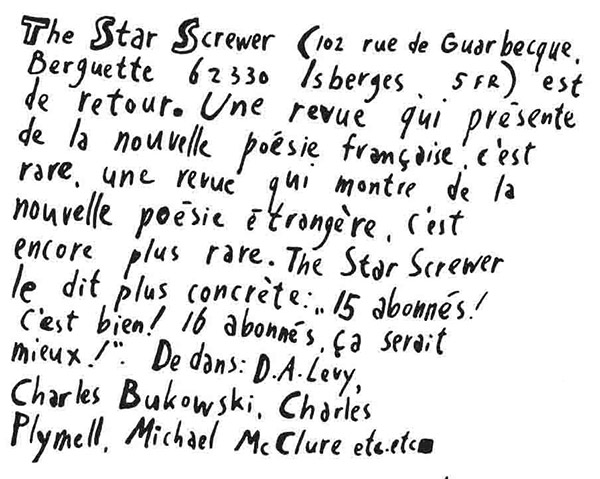 The Star Screwer (102 rue de Guarbecque,
Berguette 62330 Isberges, 5 FR) est
de retour. Une revue qui présente
de la nouvelle poésie française, c'est
rare, une revue qui montre de la
nouvelle poésie étrangère, c'est
encore plus rare. The Star Screwer
le dit plus concrète: „15 abonnés!
C'est bien! 16 abonnés, ça serait
mieux!". De dans: D.A. Levy,
Charles Bukowski, Charles
Plymell, Michael McClure etc.etc■